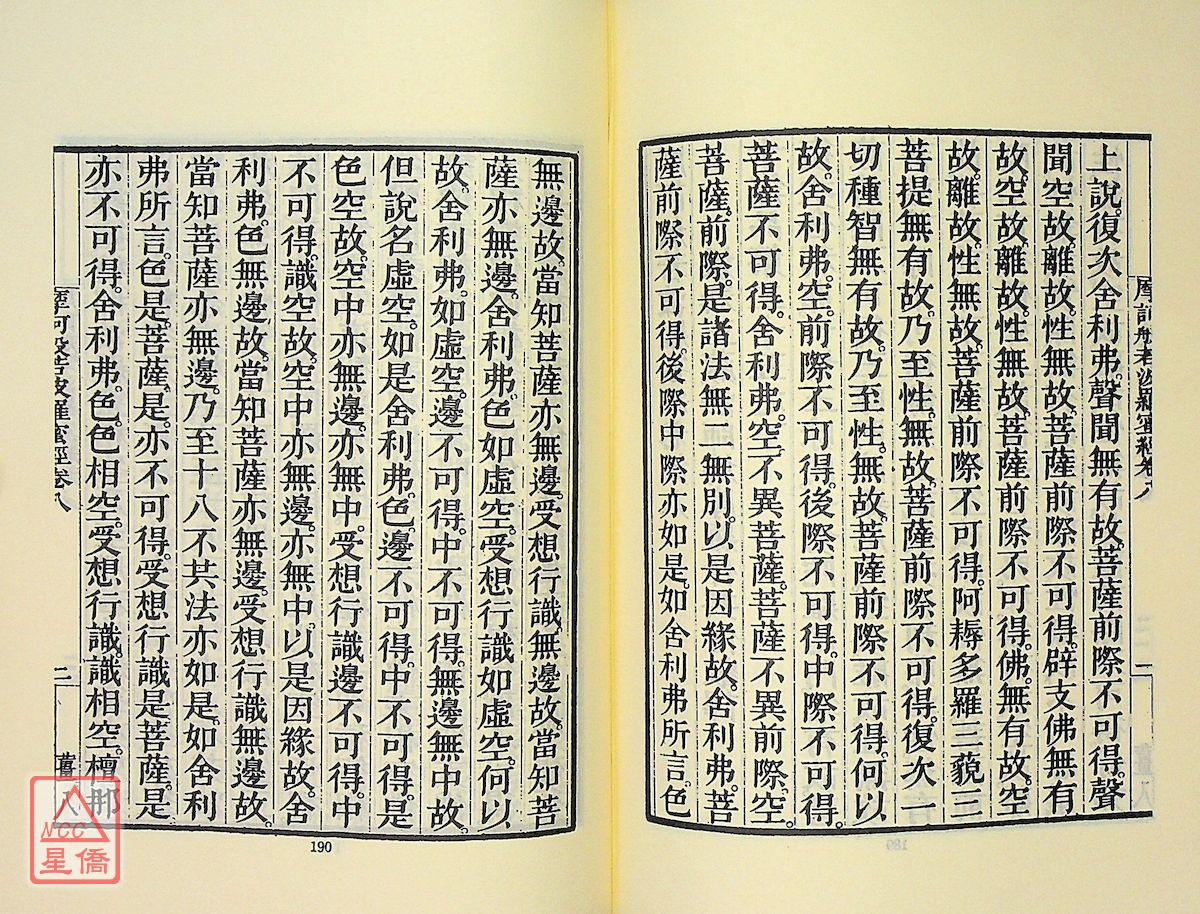 上說。復次舍利弗。聲聞無有故。菩薩前際不可得。聲
聞空故。離故。性無故。菩薩前際不可得。辟支佛無有
故。空故。離故。性無故。菩薩前際不可得。佛。無有故。空
故。離故。性無故。菩薩前際不可得。阿耨多羅三藐三
菩提無有故。乃至性。無故。菩薩前際不可得。復次一
切種智無有故。乃至性。無故。菩薩前際不可得。何以
故。舍利弗。空。前際不可得。後際不可得。中際不可得。
菩薩不可得。舍利弗。空。不異菩薩。菩薩不異前際。空。
菩薩。前際。是諸法無二無別。以是因緣故。舍利弗。菩
薩前際不可得。後際中際亦如是。如舍利弗所言。色
無邊故。當知菩薩亦無邊。受想行識。無邊故。當知菩
薩亦無邊。舍利弗。色如虛空。受想行識如虛空。何以
故。舍利弗。如虛空。邊不可得。中不可得。無邊無中故。
但說名虛空。如是舍利弗。色。邊不可得。中不可得。是
色空故。空中亦無邊。亦無中。受想行識邊不可得。中
不可得。識空故。空中亦無邊。亦無中。以是因緣故。舍
利弗。色無邊故。當知菩薩亦無邊。受想行識無邊故。
當知菩薩亦無邊。乃至十八不共法亦如是。如舍利
弗所言。色是。菩薩。是。亦不可得。受想行識是菩薩。是
亦不可得。舍利弗。色。色相空。受想行識。識相空。檀那
卷八
二
190
NCC
星僑